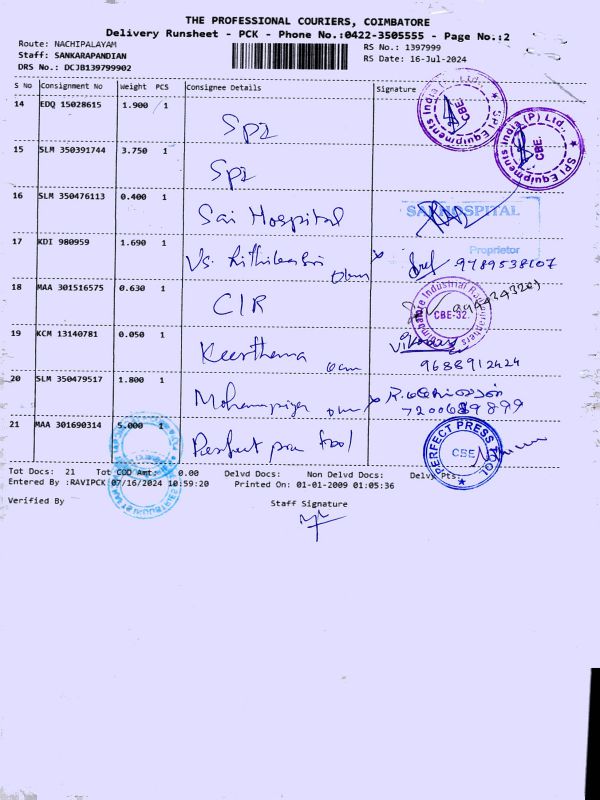 THE PROFESSIONAL COURIERS, COIMBATORE
Delivery Runsheet - PCK - Phone No.:0422-3505555 - Page No.:2
Route: NACHIPALAYAM
RS No.: 1397999
Staff: SANKARAPANDIAN
RS Date: 16-Jul-2024
DRS No.: DCJB139799902
S No Consignment No Weight PCS Consignee Details Signature
14 EDQ 15028615 1.900 1
SPI
SPI Equipments India (P) Ltd., CBE.
15 SLM 350391744 3.750 1
SPI
SPI Equipments India (P) Ltd., CBE.
16 SLM 350476113 0.400 1
Sai Hospital
SAI HOSPITAL
Proprietor
17 KDI 980959 1.690 1
Vs.
9789538607
18 MAA 301516575 0.630 1
CIR
Coimbatore Industrial CBE-32.
19 KCM 13140781 0.050 1
Keerthema
9688912424
20 SLM 350479517 1.800 1
7200689899
21 MAA 301690314 5.000 1
Perfect tool
PERFECT PRESS TOOL CBE
Tot Docs: 21 Tot COD Amt: 0.00 Delvd Docs: Non Delvd Docs: Delvy Pts:
Entered By :RAVIPCK 07/16/2024 10:59:20 Printed On: 01-01-2009 01:05:36
Verified By Staff Signature